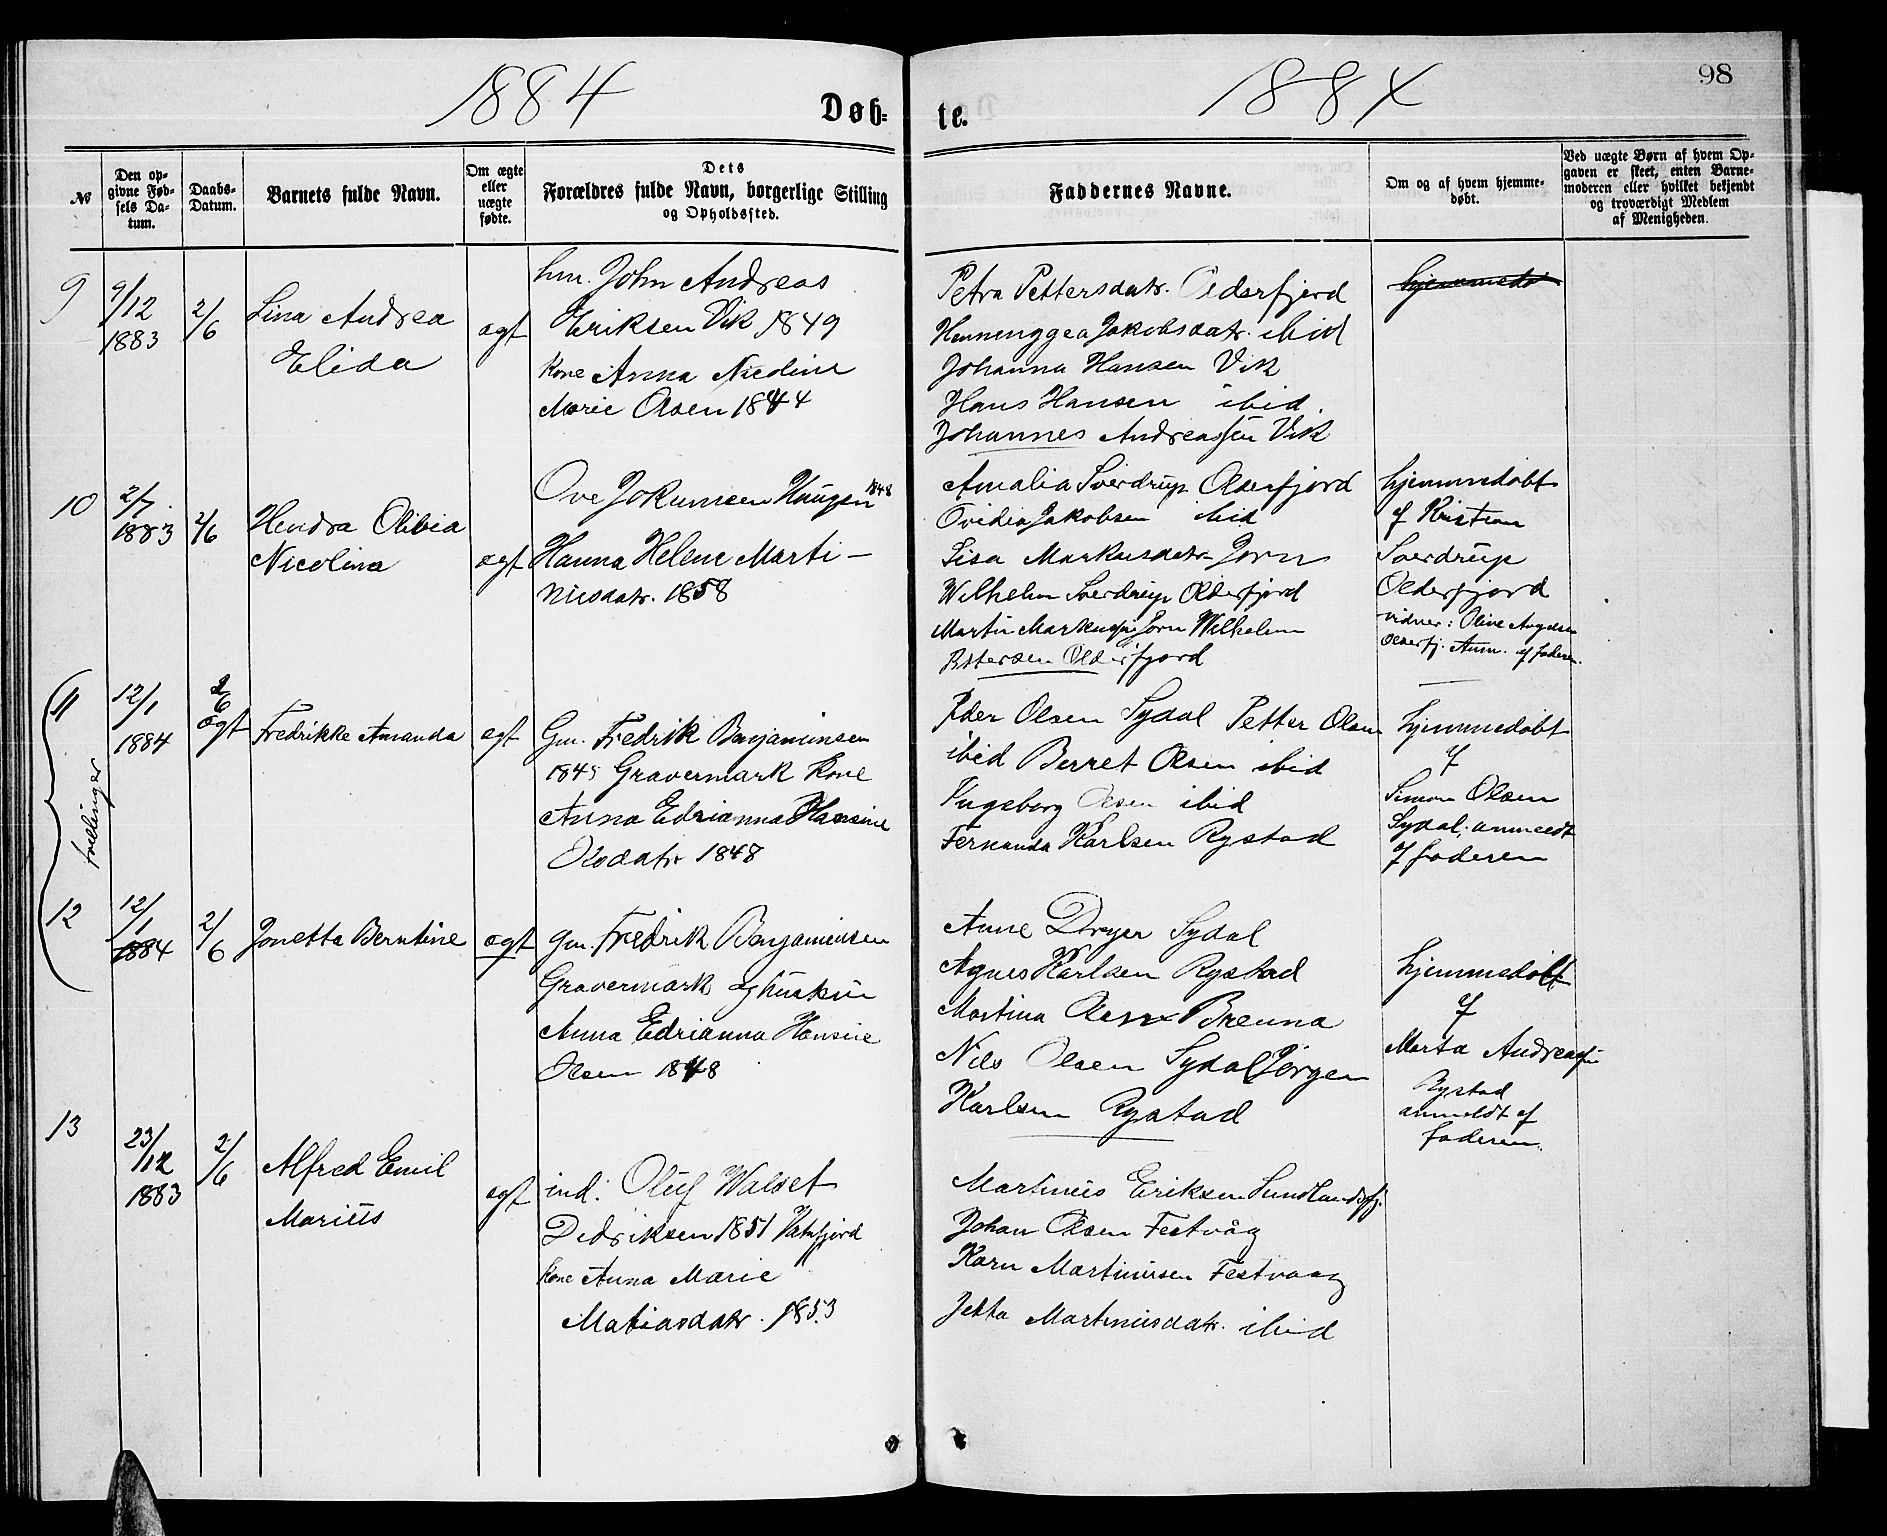 1884 Døb-
te. 1884 98
№
Den op-
givne Fød-
sels Da-
tum.
Daabs-
Datum.
Barnets fulde Navn.
Om ægte
eller
uægte
fødte.
Dets
Forældres fulde Navn, borgerlige Stilling
og Opholdssted.
Faddernes Navne.
Om og af hvem hjemme-
døbt.
Ved uægte Børn af hvem Op-
gaven er skeet, enten Barne-
moderen eller hvilket bekjendt
og troværdigt Medlem
af Menigheden.
9
9/12
1883
2/6
Lina Andrea
Elida
ægt
hm. John Andreas
Eriksen Vik 1849
Kone Anna Nicoline
Marie Olsen 1844
Petra Pettersdatr. Olderfjord
Jakobsdatr. ibid
Johanna Hansen Vik
Hans Hansen ibid.
Johannes Andreassen Vik
hjemmedø
10
2/7
1883
2/6
Hendra Olibia
Nicolina
ægt
Ove Jokumsen Haugen 1848
Hanna Helene Marti-
niusdatr. 1858
Amalia Sverdrup Olderfjord
Ovidia Jakobsen ibid
Lisa Markusdatr. Jorn
Wilhelm Sverdrup Olderfjord
Martin Jorn Wilhelm
Petersen Olderfjord
hjemmedøbt
af Kristian
Sverdrup
Olderfjord
vidner: Oline
Olderfj. Anm. af faderen.
tvillinger
11
12/1
1884
2/6
ægt
Fredrikke Amanda
ægt
Gm. Fredrik Benjaminsen
1845 Gravermark Kone
Anna Edrianna Hansine
Olsdatr 1848
Peder Olsen Sydal Petter Olsen
ibid Berret Olsen ibid
Ingeborg Olsen ibid
Fernanda Karlsen Rystad
hjemmedøbt
af
Simon Olsen
Sydal. anmeldt
af faderen
12
12/1
1884
2/6
Jonetta Berntine
ægt
gm. Fredrik Benjaminsen
Gravermark og hustru
Anna Edrianna Hansine
Olsen 1848
Anne Dreyer Sydal
Agnes Karlsen Rystad
Martina Olsen Brenna
Nils Olsen Sydal Jørgen
Karlsen Rystad
hjemmedøbt
af
Marta Andreassen
Rystad
anmeldt af
faderen.
13
23/12
1883
2/6
Alfred Emil
Marius
ægt
ind. Oluf Walset
Dedriksen 1851 Vatnfjord
Kone Anna Marie
Matiasdatr. 1853
Martinus Eriksen Sundlandsfj.
Johan Olsen Festvåg
Karn Martinusen Festvaag
Jetta Martinusdatr. ibid